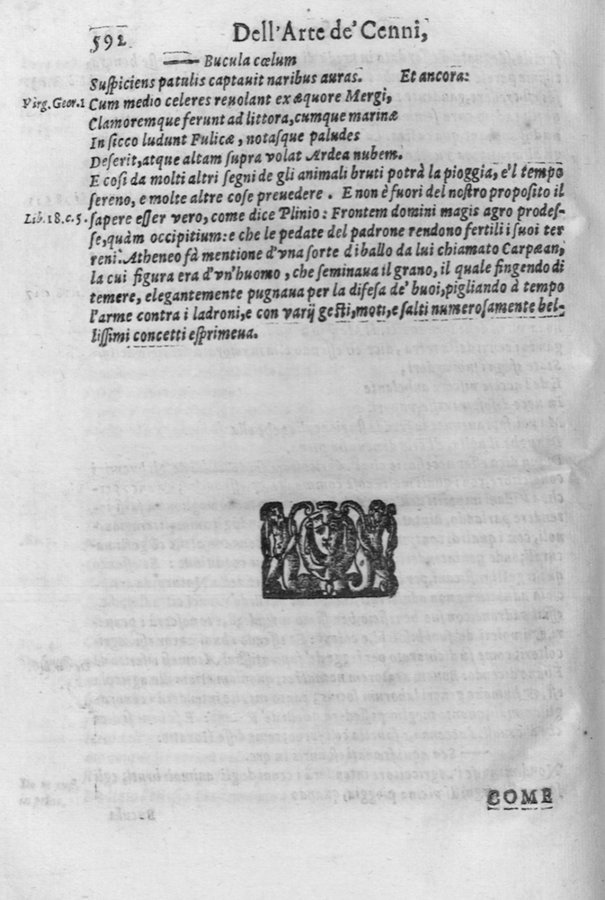 592
Dell'Arte de' Cenni,
Bucula cœlum
Suſpiciens patulis captauit naribus auras. Et ancora:
Virg. Geor. 1 Cum medio celeres reuolant ex æquore Mergi,
Clamoremque ferunt ad littora, cumque marinæ
In ſicco ludunt Fulicæ, notaſque paludes
Deſerit, atque altam ſupra volat Ardea nubem.
E coſi da molti altri ſegni de gli animali bruti potrà la pioggia, e'l tempo
ſereno, e molte altre coſe preuedere. E non è fuori del noſtro propoſito il
Lib. 18. c. 5. ſapere eſſer vero, come dice Plinio: Frontem domini magis agro prodeſ-
ſe, quàm occipitium: e che le pedate del padrone rendono fertili i ſuoi ter
reni. Atheneo fà mentione d'vna ſorte di ballo da lui chiamato Carpæan,
la cui figura era d'vn'huomo, che ſeminaua il grano, il quale fingendo di
temere, elegantemente pugnaua per la difeſa de' buoi, pigliando à tempo
l'arme contra i ladroni, e con varij geſti, moti, e ſalti numeroſamente bel-
liſſimi concetti eſprimeua.
COME